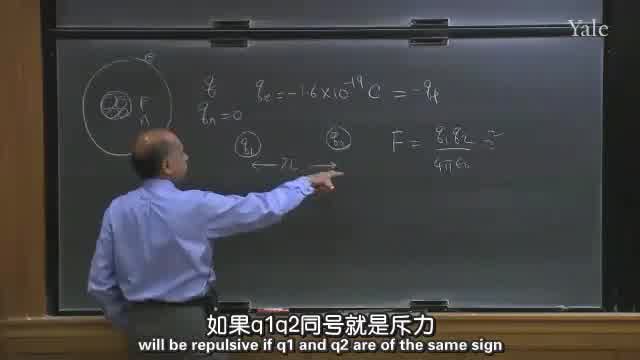 Yale
e
q
qₑ = -1.6 × 10⁻¹⁹ C = -qₚ
qₙ = 0
q₁
q₂
F = q₁ q₂
4π ε₀
如果q1q2同号就是斥力
will be repulsive if q1 and q2 are of the same sign